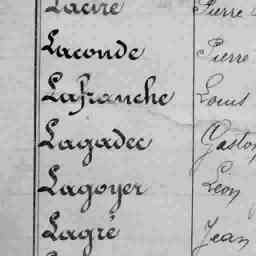 Lacire Pierre
Laconde Pierre
Lafranche Louis
Lagadec Gaston
Lagoyer Léon
Lagré Jean